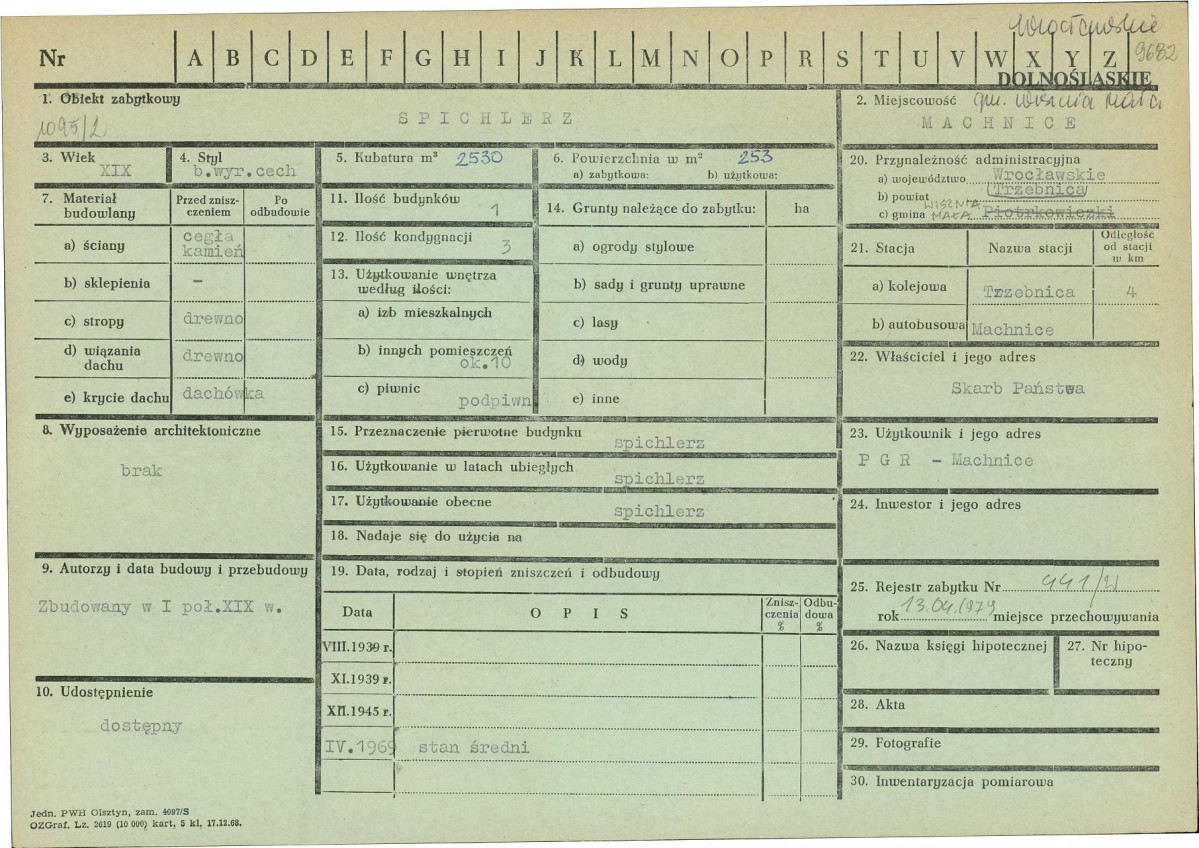 Wrocławskie
9682
Nr A B C D E F G H I J K L M N O P R S T U V W X Y Z
DOLNOŚLĄSKIE
1. Obiekt zabytkowy
1095/2
SPICHLERZ
2. Miejscowość gm. Wisznia Mała
MACHNICE
3. Wiek
XIX
4. Styl
b.wyr.cech
5. Kubatura m³ 2530
6. Powierzchnia w m² 253
a) zabytkowa: b) użytkowa:
20. Przynależność administracyjna
a) województwo Wrocławskie
b) powiat Trzebnica
c) gmina WISZNIA MAŁA Piotrkowiczki
7. Materiał budowlany
Przed zniszczeniem
Po odbudowie
a) ściany cegła kamień
b) sklepienia –
c) stropy drewno
d) wiązania dachu drewno
e) krycie dachu dachówka
11. Ilość budynków 1
12. Ilość kondygnacji 3
13. Użytkowanie wnętrza według ilości:
a) izb mieszkalnych
b) innych pomieszczeń ok.10
c) piwnic podpiwn
14. Grunty należące do zabytku: ha
a) ogrody stylowe
b) sady i grunty uprawne
c) lasy
d) wody
e) inne
21. Stacja Nazwa stacji Odległość od stacji w km
a) kolejowa Trzebnica 4
b) autobusowa Machnice
22. Właściciel i jego adres
Skarb Państwa
8. Wyposażenie architektoniczne
brak
15. Przeznaczenie pierwotne budynku spichlerz
16. Użytkowanie w latach ubiegłych spichlerz
17. Użytkowanie obecne spichlerz
18. Nadaje się do użycia na
23. Użytkownik i jego adres
P G R – Machnice
24. Inwestor i jego adres
9. Autorzy i data budowy i przebudowy
Zbudowany w I poł.XIX w.
19. Data, rodzaj i stopień zniszczeń i odbudowy
Data OPIS Zniszczenia % Odbudowa %
VIII.1939 r.
XI.1939 r.
XII.1945 r.
IV.1969 stan średni
25. Rejestr zabytku Nr 441/W
rok 13.04.1979 miejsce przechowywania
26. Nazwa księgi hipotecznej
27. Nr hipoteczny
10. Udostępnienie
dostępny
28. Akta
29. Fotografie
30. Inwentaryzacja pomiarowa
Jedn. PWH Olsztyn, zam. 4097/S
OZGraf. Lz. 2619 (10 000) kart, 5 kl. 17.12.68.